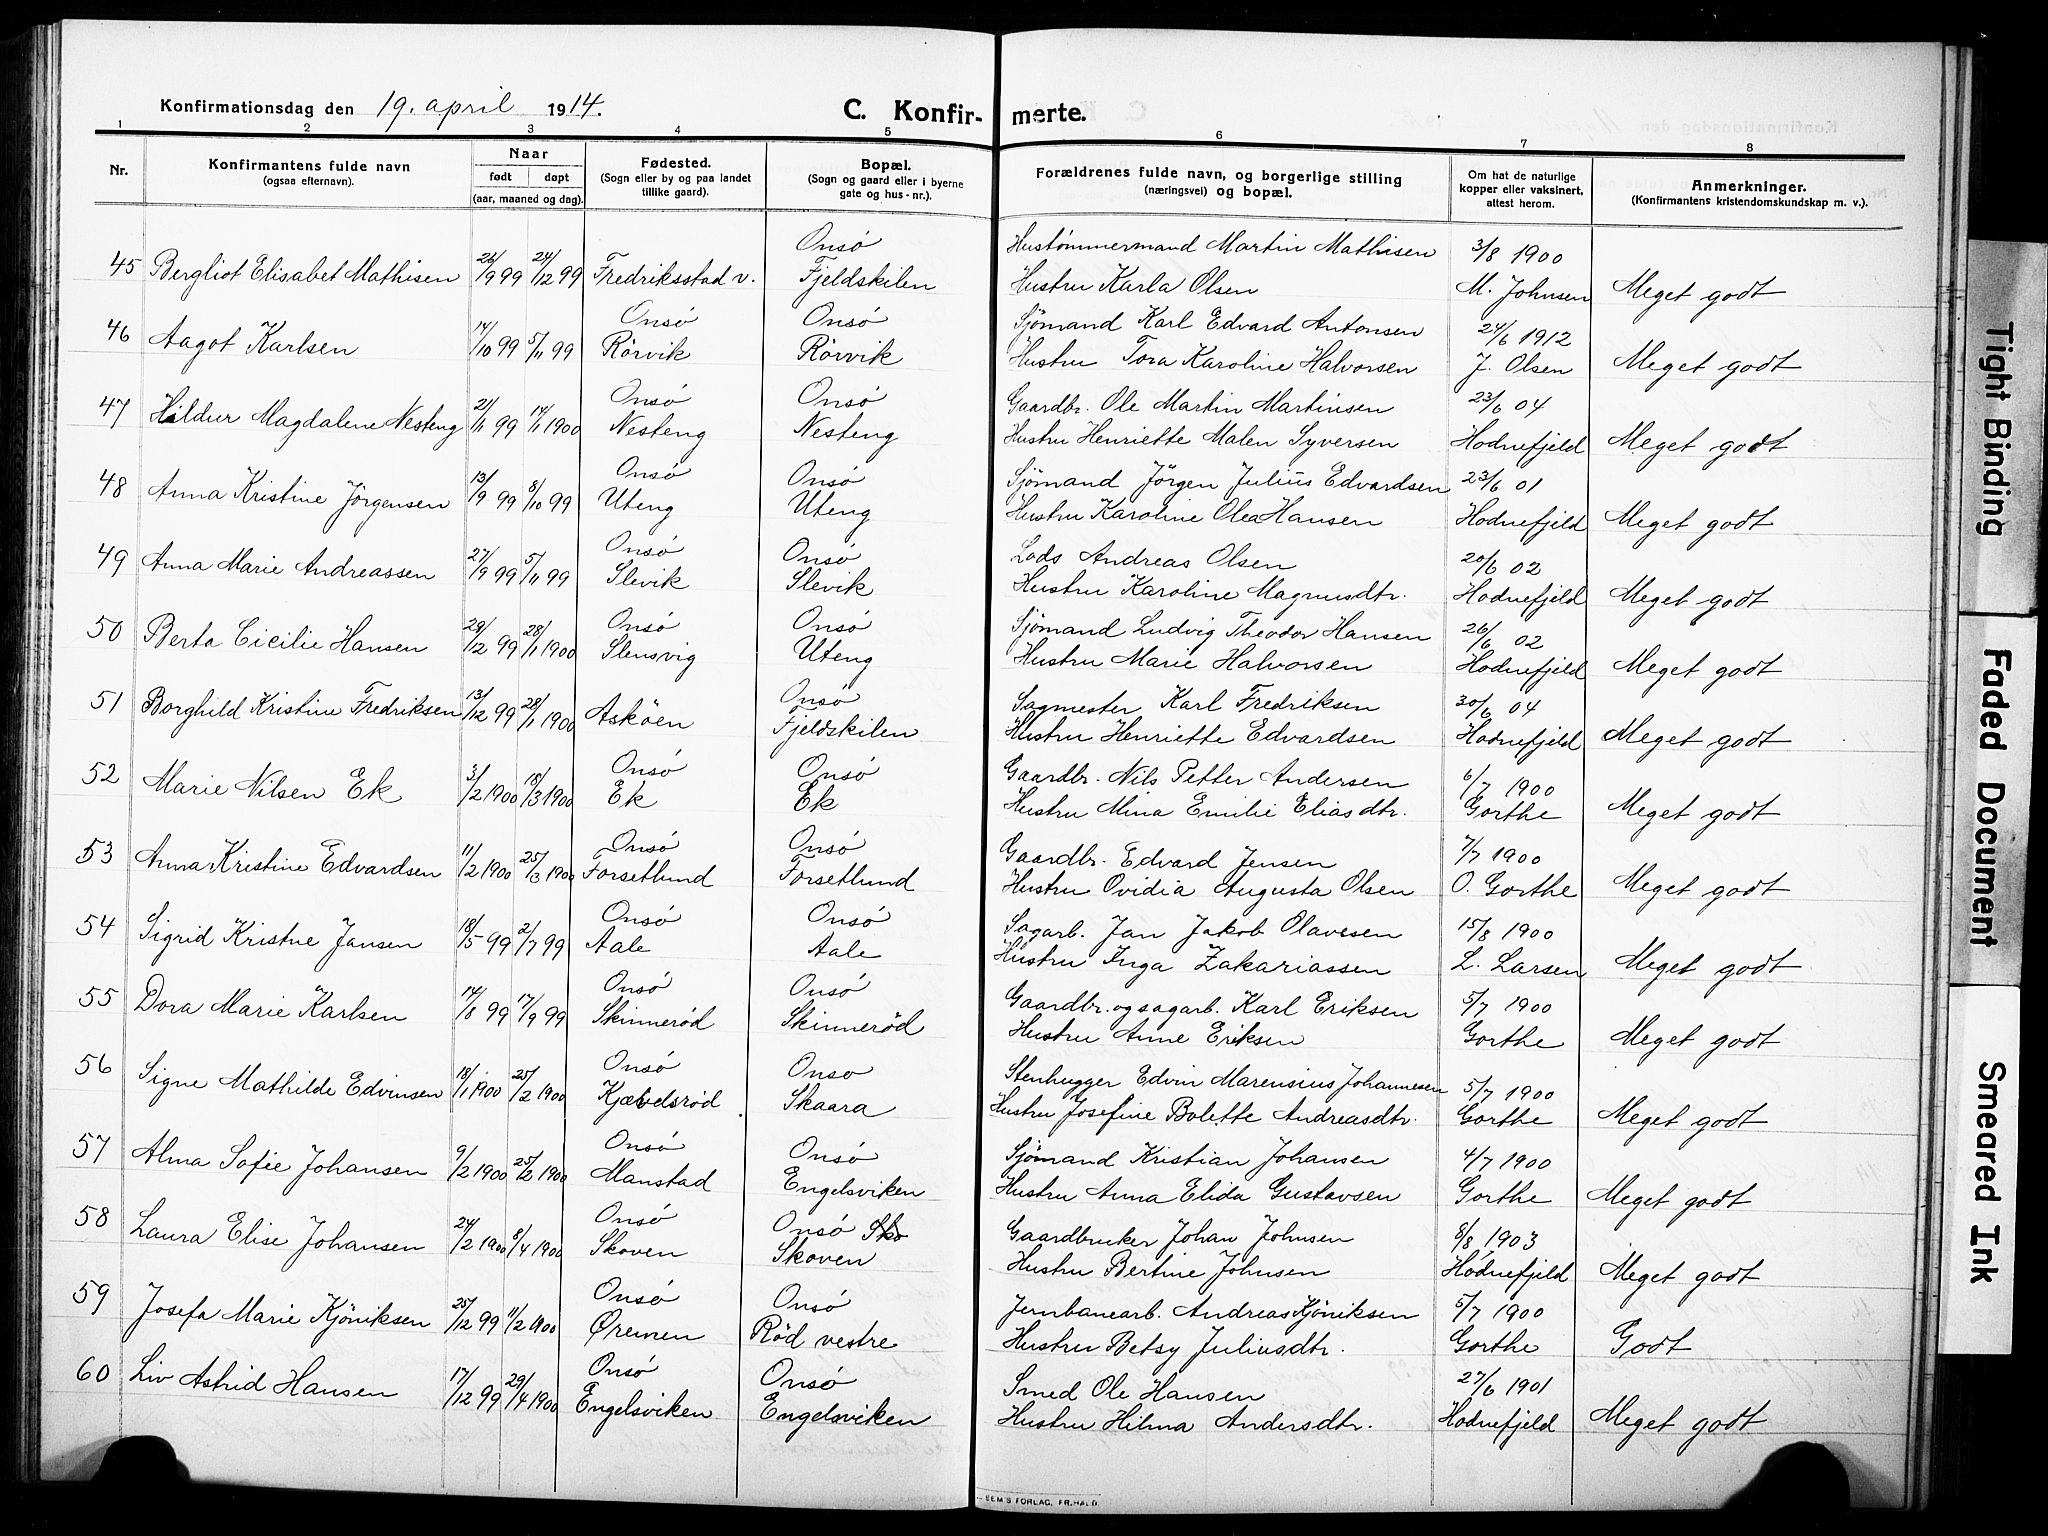 Konfirmationsdag den 19. april 1914.
C. Konfir- merte.
1 2 3 4 5 6 7 8
Nr.
Konfirmantens fulde navn
(ogsaa efternavn).
Naar
født døpt
(aar, maaned og dag).
Fødested.
(Sogn eller by og paa landet
tillike gaard).
Bopæl.
(Sogn og gaard eller i byerne
gate og hus-nr.).
Forældrenes fulde navn, og borgerlige stilling
(næringsvei) og bopæl.
Om hat de naturlige
kopper eller vaksinert,
attest herom.
Anmerkninger.
(Konfirmantens kristendomskundskap m. v.).
Onsö Hustömmermand Martin Mathisen 3/8 1900
45 Bergliot Elisabet Mathisen 26/9 99 24/12 99 Fredriksstad v. Fjeldskilen Hustru Karla Olsen M. Johnsen Meget godt
Onsö Onsö Sjömand Karl Edvard Antonsen 24/6 1912
46 Aagot Karlsen 14/10 99 5/11 99 Rörvik Rörvik Hustru Tora Karoline Halvorsen J. Olsen Meget godt
Onsö Onsö Gaardbr. Ole Martin Martinsen 23/6 04
47 Hildur Magdalene Nesteng 21/11 99 14/1 1900 Nesteng Nesteng Hustru Henriette Malen Syversen Hodnefjeld Meget godt
Onsö Onsö Sjömand Jörgen Julius Edvardsen 23/6 01
48 Anna Kristine Jörgensen 13/9 99 8/10 99 Uteng Uteng Hustru Karoline Olea Hansen Hodnefjeld Meget godt
Onsö Onsö Lods Andreas Olsen 20/6 02
49 Anna Marie Andreassen 27/9 99 5/11 99 Slevik Slevik Hustru Karoline Magnusdtr. Hodnefjeld Meget godt
Onsö Onsö Sjömand Ludvig Theodor Hansen 26/6 02
50 Berta Cicilie Hansen 29/12 99 28/1 1900 Slensvig Uteng Hustru Marie Halvorsen Hodnefjeld Meget godt
Onsö Sagmester Karl Fredriksen 30/6 04
51 Borghild Kristine Fredriksen 13/12 99 28/1 1900 Asköen Fjeldskilen Hustru Henriette Edvardsen Hodnefjeld Meget godt
Onsö Onsö Gaardbr. Nils Petter Andersen 6/7 1900
52 Marie Nilsen Ek 3/2 1900 18/3 1900 Ek Ek Hustru Mina Emilie Eliasdtr. Gorthe Meget godt
Onsö Onsö Gaardbr. Edvard Jensen 7/7 1900
53 Anna Kristine Edvardsen 11/2 1900 25/3 1900 Forsetlund Forsetlund Hustru Ovidia Augusta Olsen O. Gorthe Meget godt
Onsö Onsö Sagarb. Jan Jakob Olavesen 15/8 1900
54 Sigrid Kristne Jansen 18/5 99 2/7 99 Aale Aale Hustru Inga Zakariassen L. Larsen Meget godt
Onsö Onsö Gaardbr. og sagarb. Karl Eriksen 5/7 1900
55 Dora Marie Karlsen 14/8 99 17/9 99 Skinneröd Skinneröd Hustru Anne Eriksen Gorthe Meget godt
Onsö Onso Stenhugger Edvin Marensius Johannesen 5/7 1900
56 Signe Mathilde Edvinsen 18/1 1900 25/2 1900 Skaara Hustru Josefine Bolette Andreasdtr. Gorthe Meget godt
Onsö Onsö Sjömand Kristian Johansen 4/7 1900
57 Alma Sofie Johansen 9/2 1900 25/2 1900 Manstad Engelsviken Hustru Anna Elida Gustavsen Gorthe Meget godt
Onsö Onsö Sko Gaardbruker Johan Johnsen 8/8 1903
58 Laura Elise Johansen 24/2 1900 8/4 1900 Skoven Skoven Hustru Bertine Johnsen Hodnefjeld Meget godt
Onsö Onsö Jernbanearb. Andreas Kjöniksen 5/7 1900
59 Josefa Marie Kjöniksen 25/12 99 11/2 1900 Øremen Röd vestre Hustru Betsy Juliusdtr. Gorthe Godt
Onsö Onsö Smed Ole Hansen 27/6 1901
60 Liv Astrid Hansen 17/12 99 29/4 1900 Engelsviken Engelsviken Hustru Hilma Andersdtr. Hodnefjeld Meget godt
SEM'S FORLAG, FR.HALD
Tight Binding
Faded Document
Smeared Ink